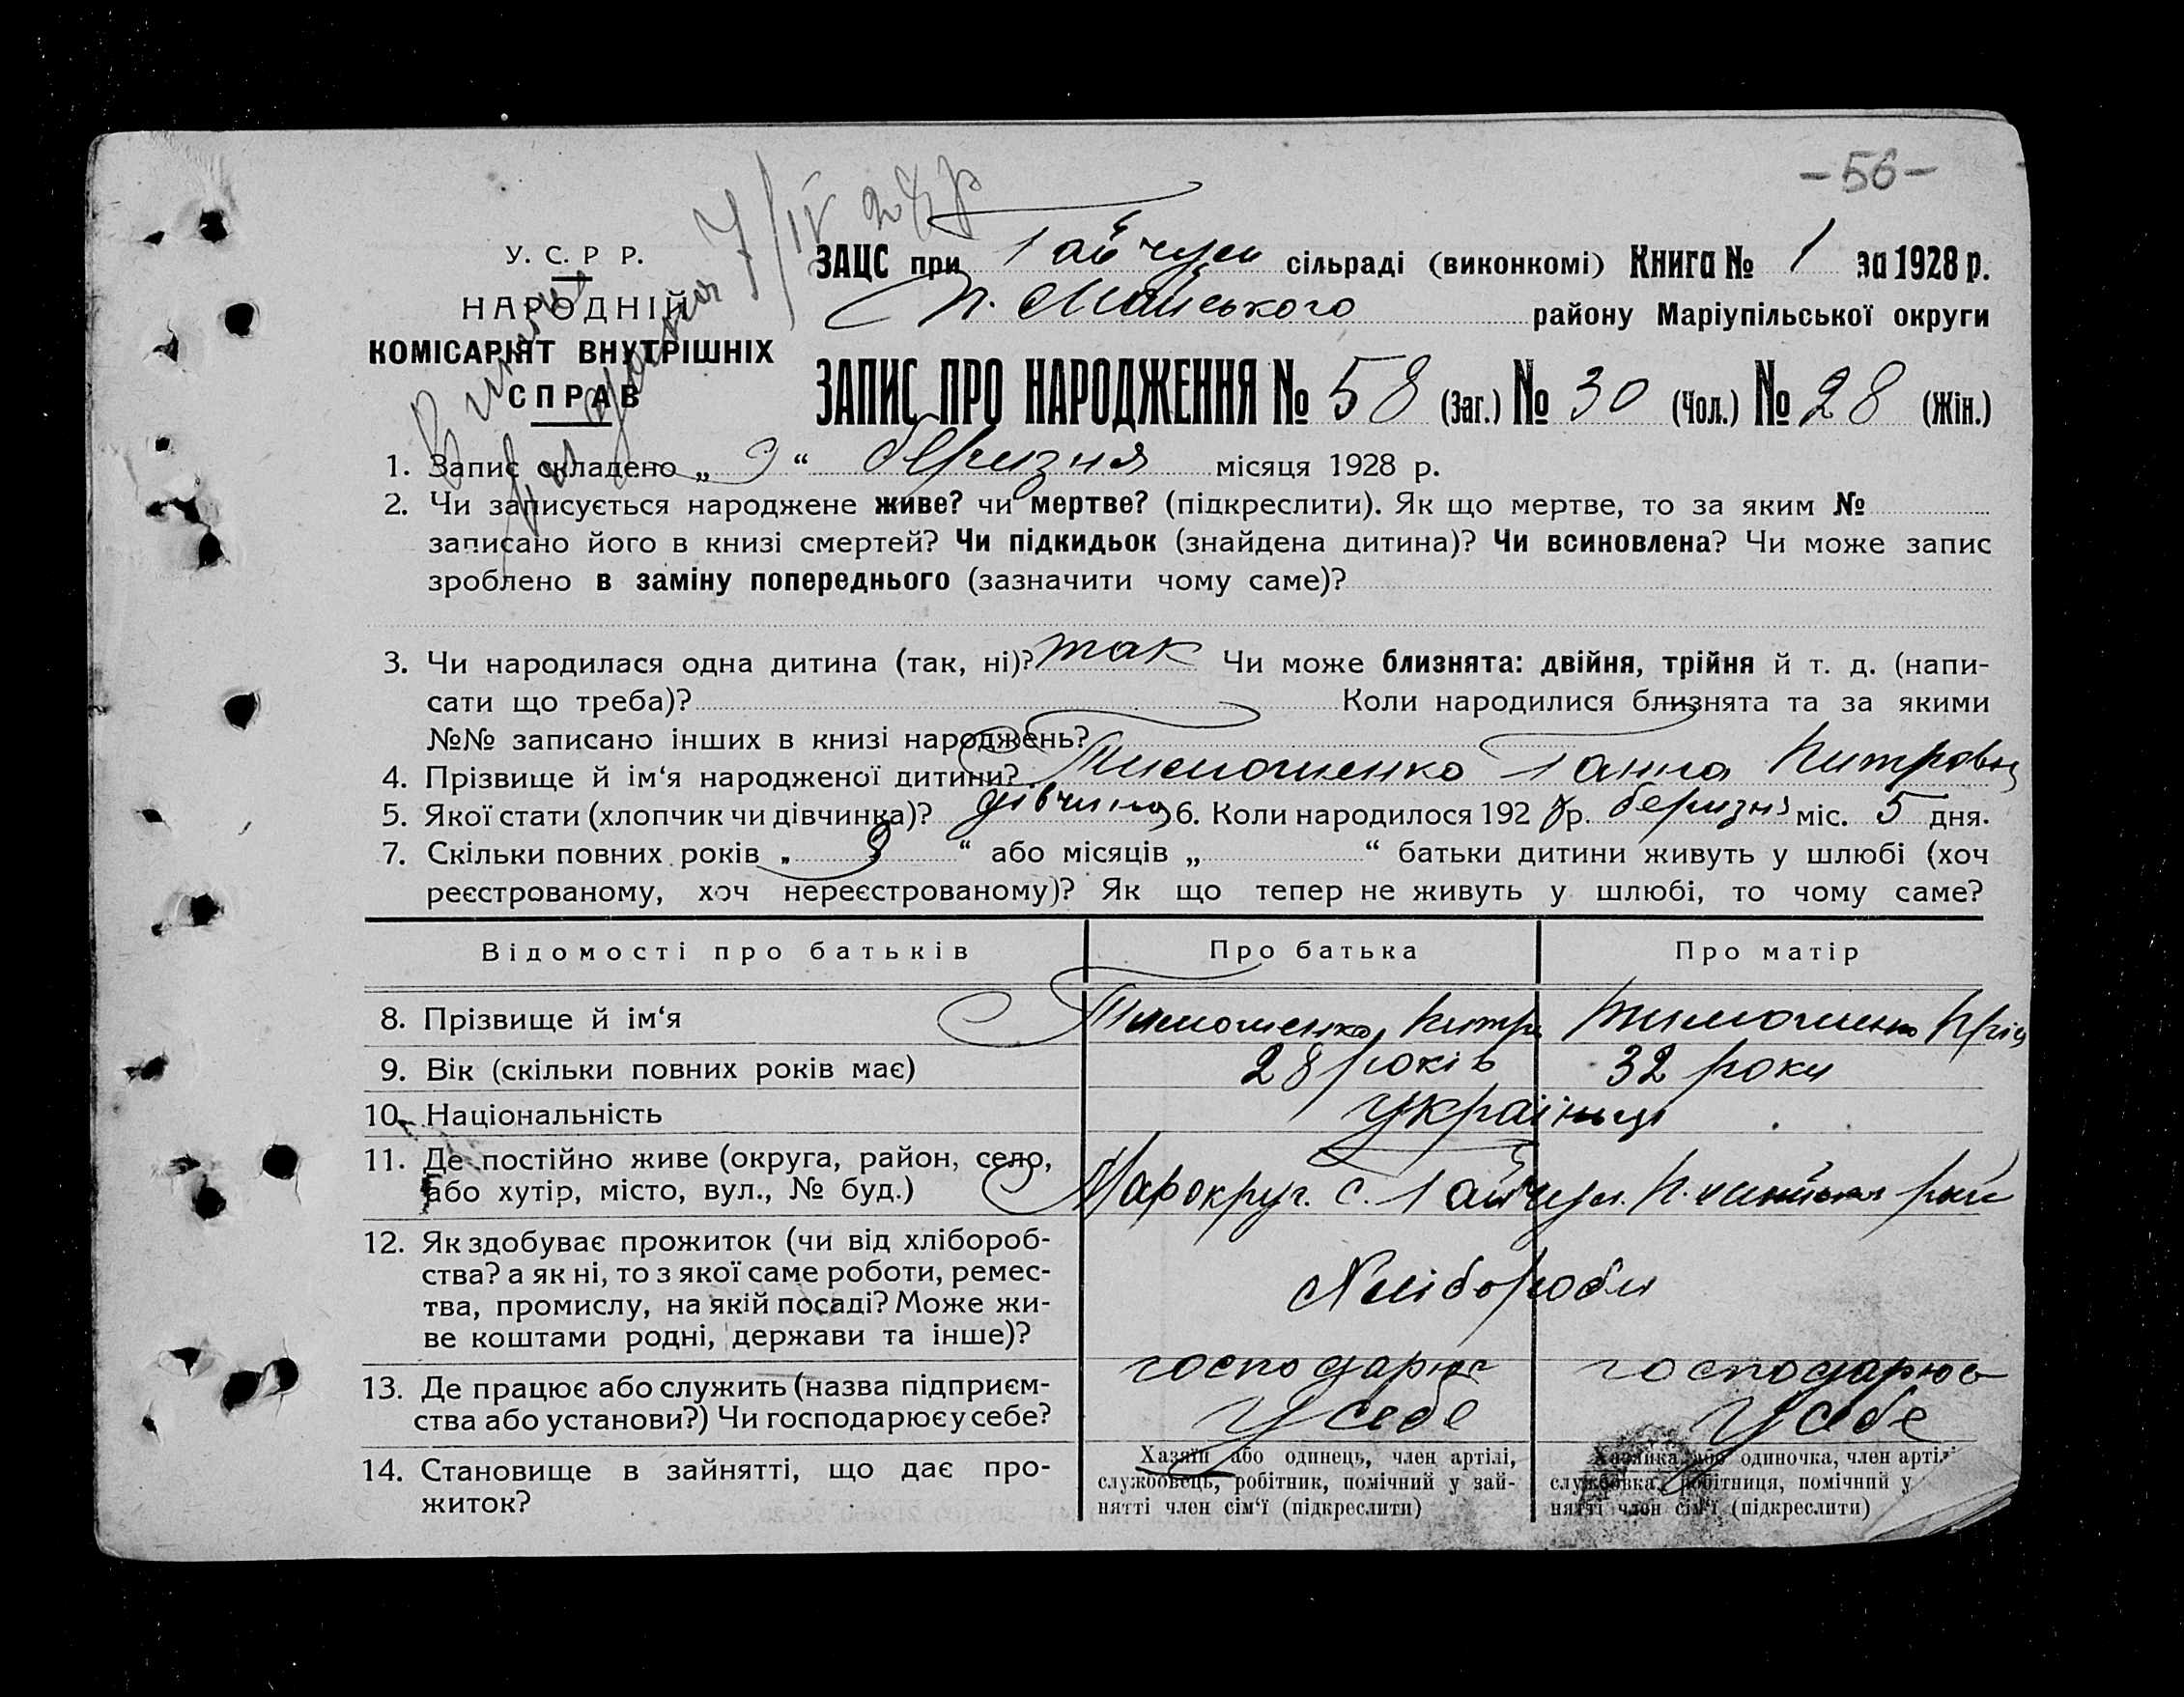 -56-
У. С. Р Р.
НАРОДНІЙ
КОМІСАРІЯТ ВНУТРІШНІХ
СПРАВ
7/IV 28 р
ЗАЦС при Гайчул сільраді (виконкомі) Книга № 1 за 1928 р.
району Маріупільської округи
ЗАПИС ПРО НАРОДЖЕННЯ № 58 (Заг.) № 30 (Чол.) № 28 (Жін.)
1. Запис складено „ 9 “ березня місяця 1928 р.
2. Чи записується народжене живе? чи мертве? (підкреслити). Як що мертве, то за яким №
записано його в книзі смертей? Чи підкидьок (знайдена дитина)? Чи всиновлена? Чи може запис
зроблено в заміну попереднього (зазначити чому саме)?
3. Чи народилася одна дитина (так, ні)? так Чи може близнята: двійня, трійня й т. д. (напи-
сати що треба)? Коли народилися близнята та за якими
№№ записано інших в книзі народжень?
4. Прізвище й ім‘я народженої дитини? Тимошенко Ганна
5. Якої стати (хлопчик чи дівчинка)? дівчина 6. Коли народилося 192 8 р. березня міс. 5 дня.
7. Скільки повних років „ 9 “ або місяців „ “ батьки дитини живуть у шлюбі (хоч
реєстрованому, хоч нереєстрованому)? Як що тепер не живуть у шлюбі, то чому саме?
Відомості про батьків Про батька Про матір
8. Прізвище й ім‘я Тимошенко Тимошенко
9. Вік (скільки повних років має) 28 років 32 роки
10. Національність українці
11. Де постійно живе (округа, район, село,
або хутір, місто, вул., № буд.) с. Гайчул
12. Як здобуває прожиток (чи від хлібороб-
ства? а як ні, то з якої саме роботи, ремес-
тва, промислу, на якій посаді? Може жи-
ве коштами родні, держави та інше)?
Хлібороби
13. Де працює або служить (назва підприєм-
ства або установи?) Чи господарює у себе?
господарює у себе господарює у себе
14. Становище в зайнятті, що дає про-
житок?
Хазяїн або одинець, член артілі,
службовець, робітник, помічний у зай-
нятті член сім‘ї (підкреслити)
Хазяйка або одиночка, член артілі
службовка, робітниця, помічний у
нятті член сім‘ї (підкреслити)